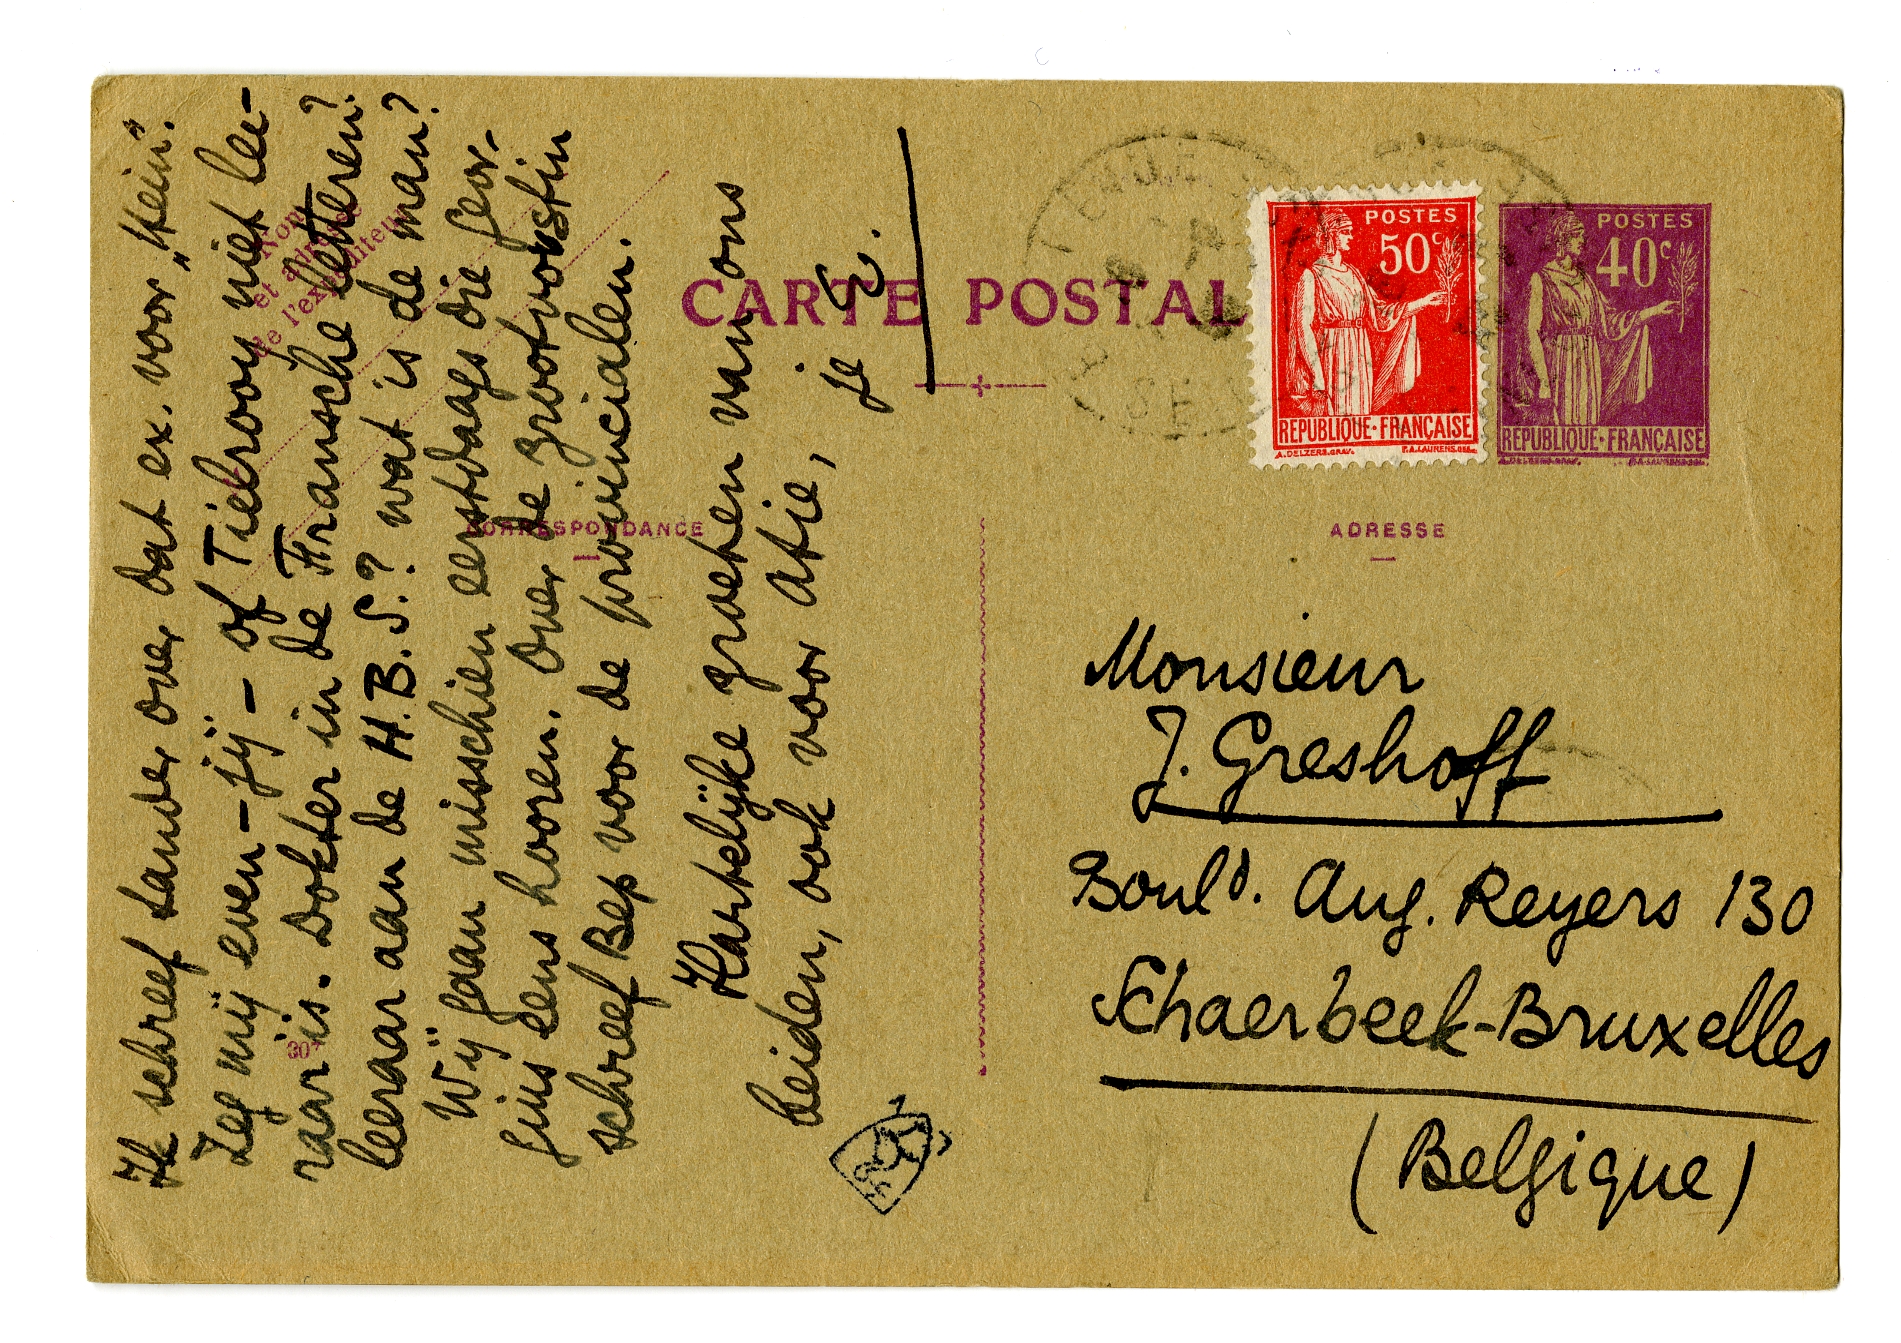 Ik schreef Sander over dat ex. voor „Hein".
Zeg mij even – jij – of Tielrooy niet lee-
raar is. Dokter in de Fransche letteren?
leeraar aan de H.B.S.? wat is de man?
Wij gaan misschien eerstdaags die feor-
gins eens hooren. Over de grootvorstin
schreef Bep voor de provincialen.
Hartelijke groeten van ons
beiden, ook voor Atie,
je E.
Nom
et adresse
de l'expéditeur
CARTE POSTAL
CORRESPONDANCE
ADRESSE
POSTES
50c
REPUBLIQUE·FRANÇAISE
A.DELZERS.GRAV. P.A.LAURENS.DEL.
POSTES
40c
REPUBLIQUE·FRANÇAISE
Monsieur
J. Greshoff
Bould. Aug. Reyers 130
Schaerbeek-Bruxelles
(Belgique)